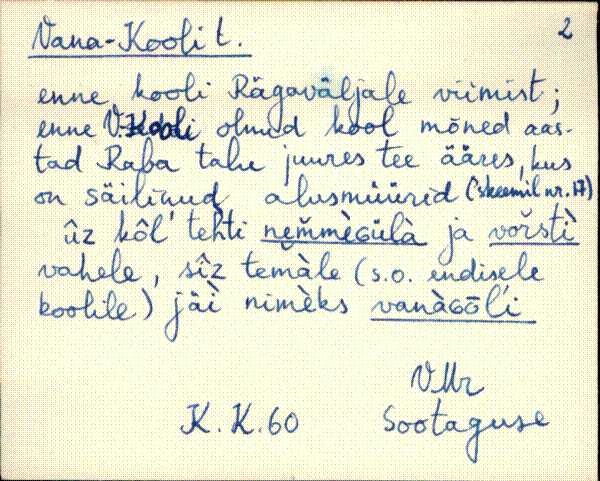 Vana-Kooli t. 2
enne kooli Rägaväljale viimist;
enne V.-Kooli olnud kool mõned aas-
tad Raba talu juures tee ääres, kus
on säilinud alusmüürid (skeemil nr. 17)
ûz kôl' tehti nem̆mègülà ja vor̆stì
vahele, sîz temàle (s.o. endisele
koolile) jäì nimèks vanàGōl'i
VMr
K.K.60 Sootaguse